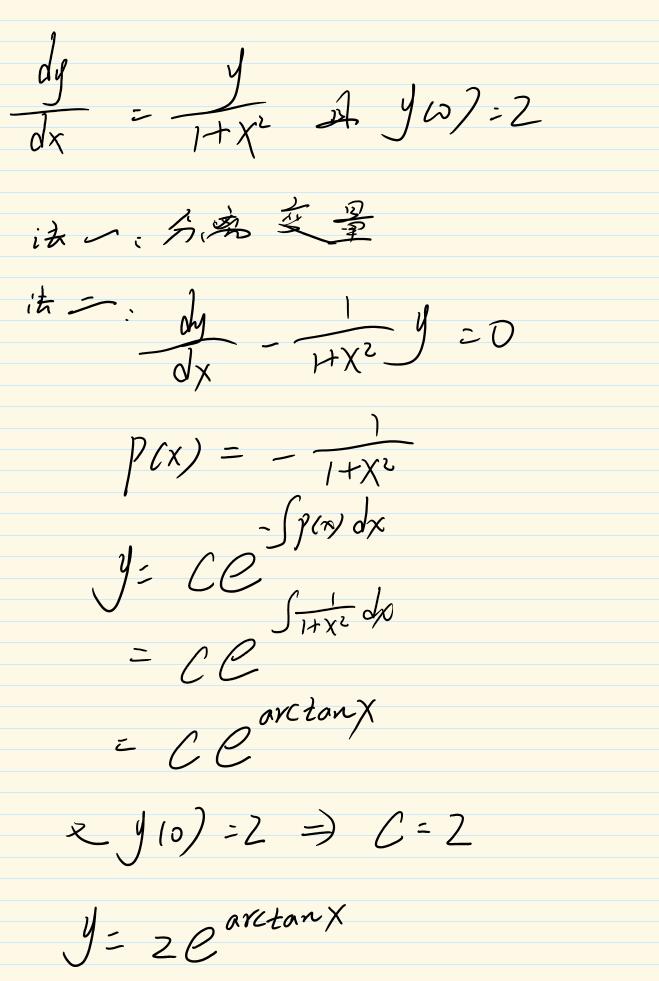 dy/dx = y/(1+x²) 且 y(0)=2
法一: 分离变量
法二: dy/dx - 1/(1+x²) y = 0
p(x) = - 1/(1+x²)
y = ce^(-∫p(x)dx)
= ce^(∫1/(1+x²) dx)
= ce^(arctanx)
又 y(0)=2 ⇒ C=2
y = 2e^(arctanx)